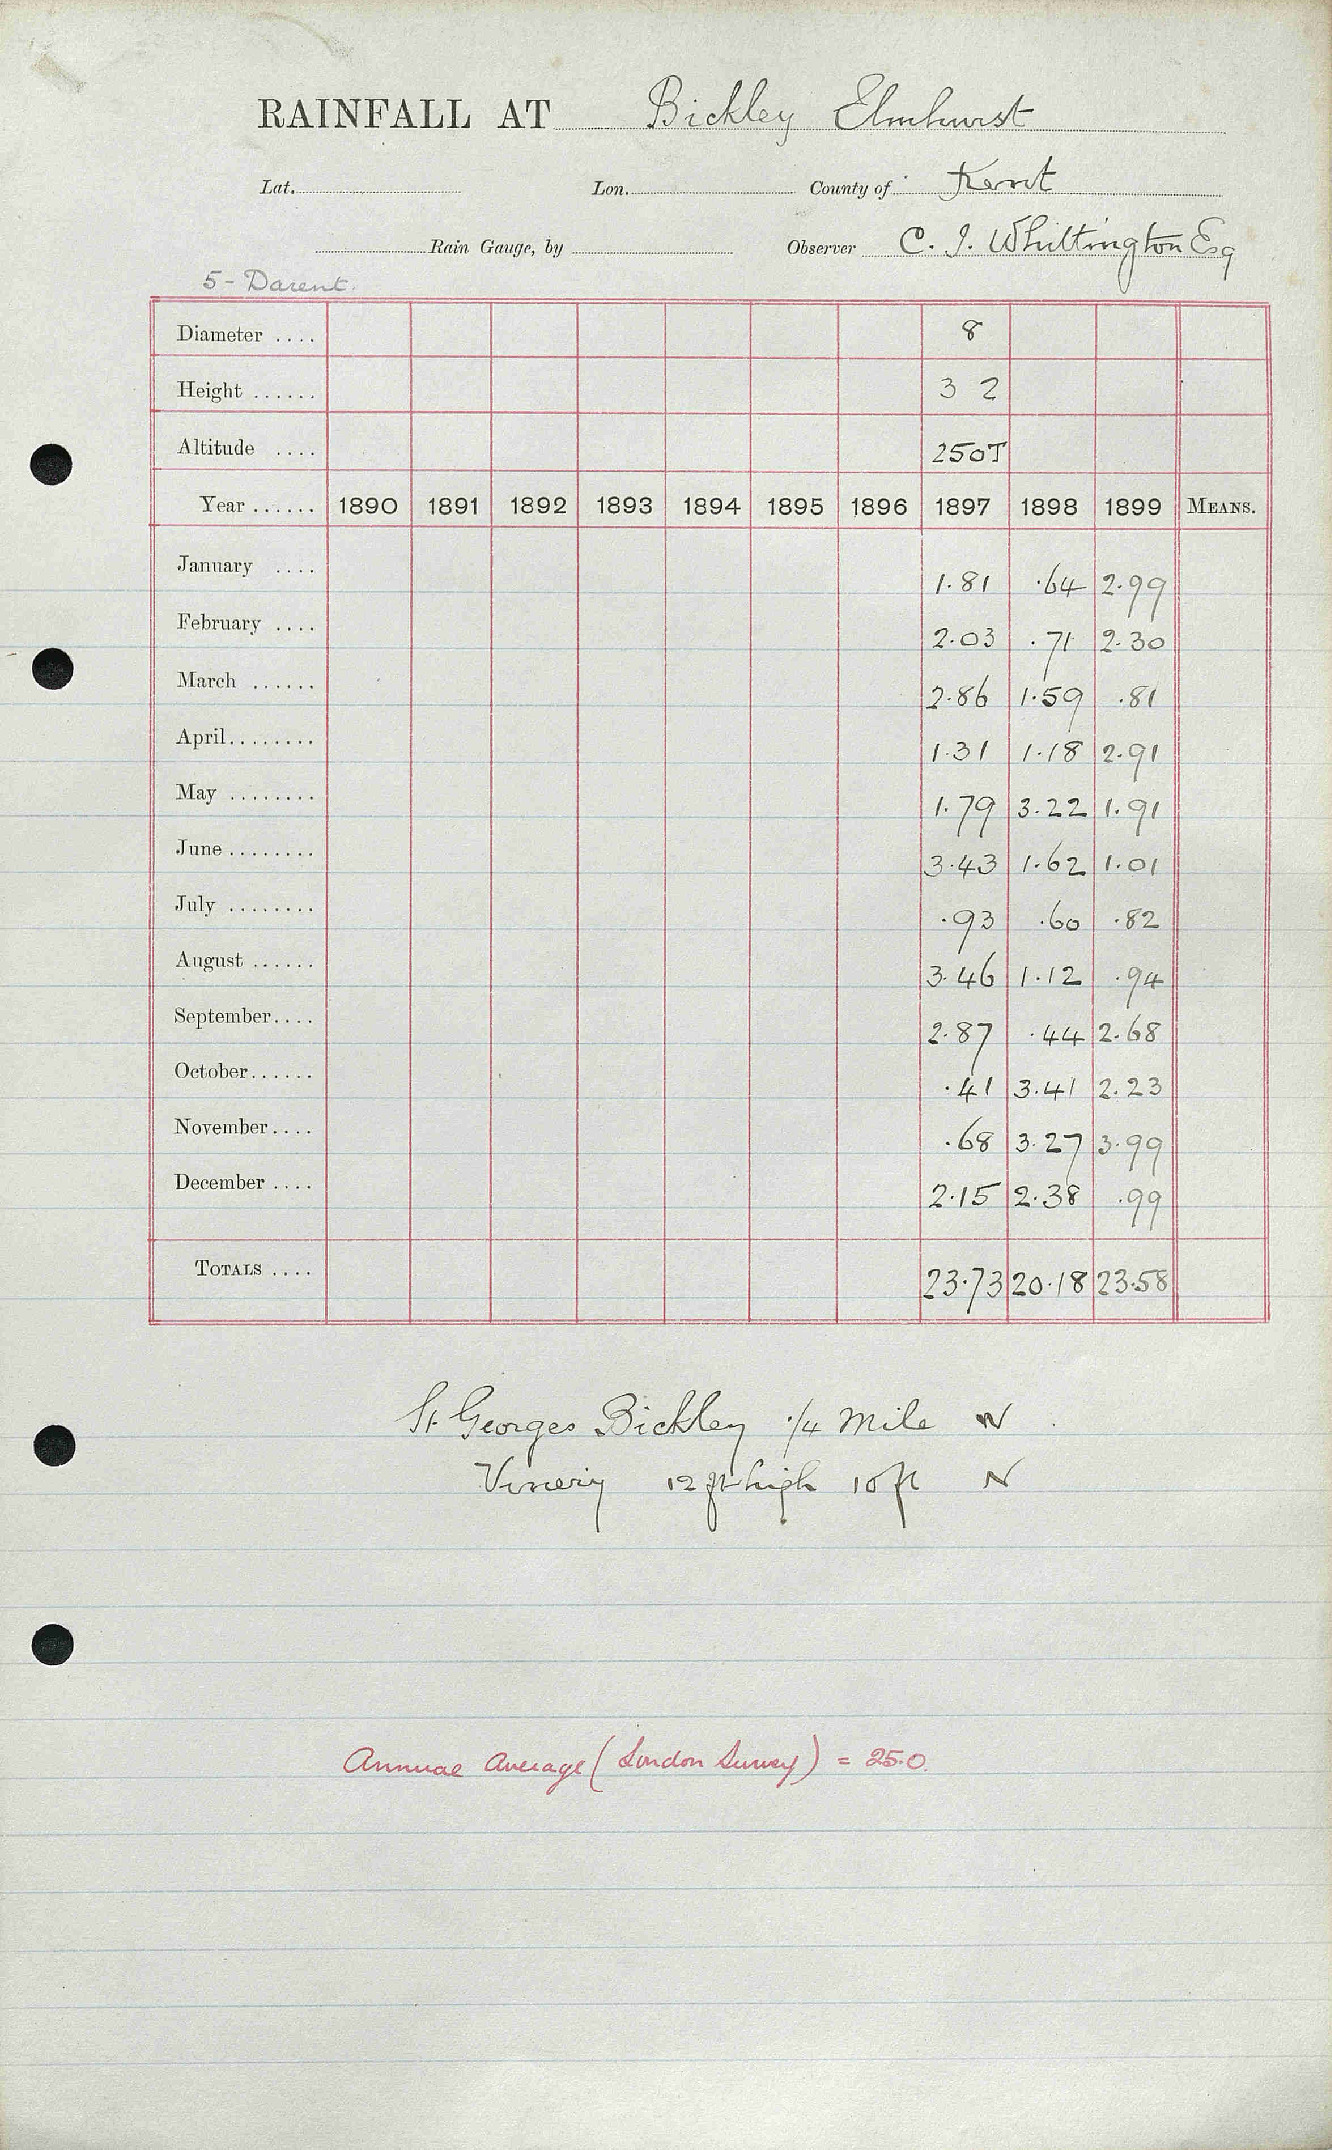 RAINFALL AT Bickley Elmhurst
Lat. Lon. County of Kent
Rain Gauge, by Observer C. J. Whittington Esq
5 - Darent.
Diameter .... 8
Height ...... 3 2
Altitude .... 250T
Year ...... 1890 1891 1892 1893 1894 1895 1896 1897 1898 1899 MEANS.
January .... 1.81 .64 2.99
February .... 2.03 .71 2.30
March ...... 2.86 1.59 .81
April........ 1.31 1.18 2.91
May ........ 1.79 3.22 1.91
June ........ 3.43 1.62 1.01
July ........ .93 .60 .82
August ...... 3.46 1.12 .94
September.... 2.87 .44 2.68
October...... .41 3.41 2.23
November.... .68 3.27 3.99
December .... 2.15 2.38 .99
TOTALS .... 23.73 20.18 23.58
St Georges Bickley 1/4 mile W
Vinery 12 ft high 10 ft N
Annual Average (London Survey) = 25.0.